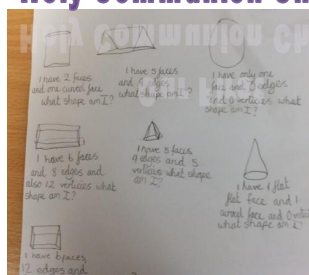 Holy Communion Ch
I have 2 faces
and one curved face
what shape am I?
I have 5 faces
and 9 edges
what shape am I?
I have only one
face and 0 edges
and 0 vertices what
shape am I?
I have 6 faces
and 8 edges and
also 12 vertices what
shape am I?
I have 5 faces
9 edges and 5
vertices what shape
am I?
I have 1 flat
flat face and 1
curved face and 0
what shape am I?
I have 6 faces
12 edges and